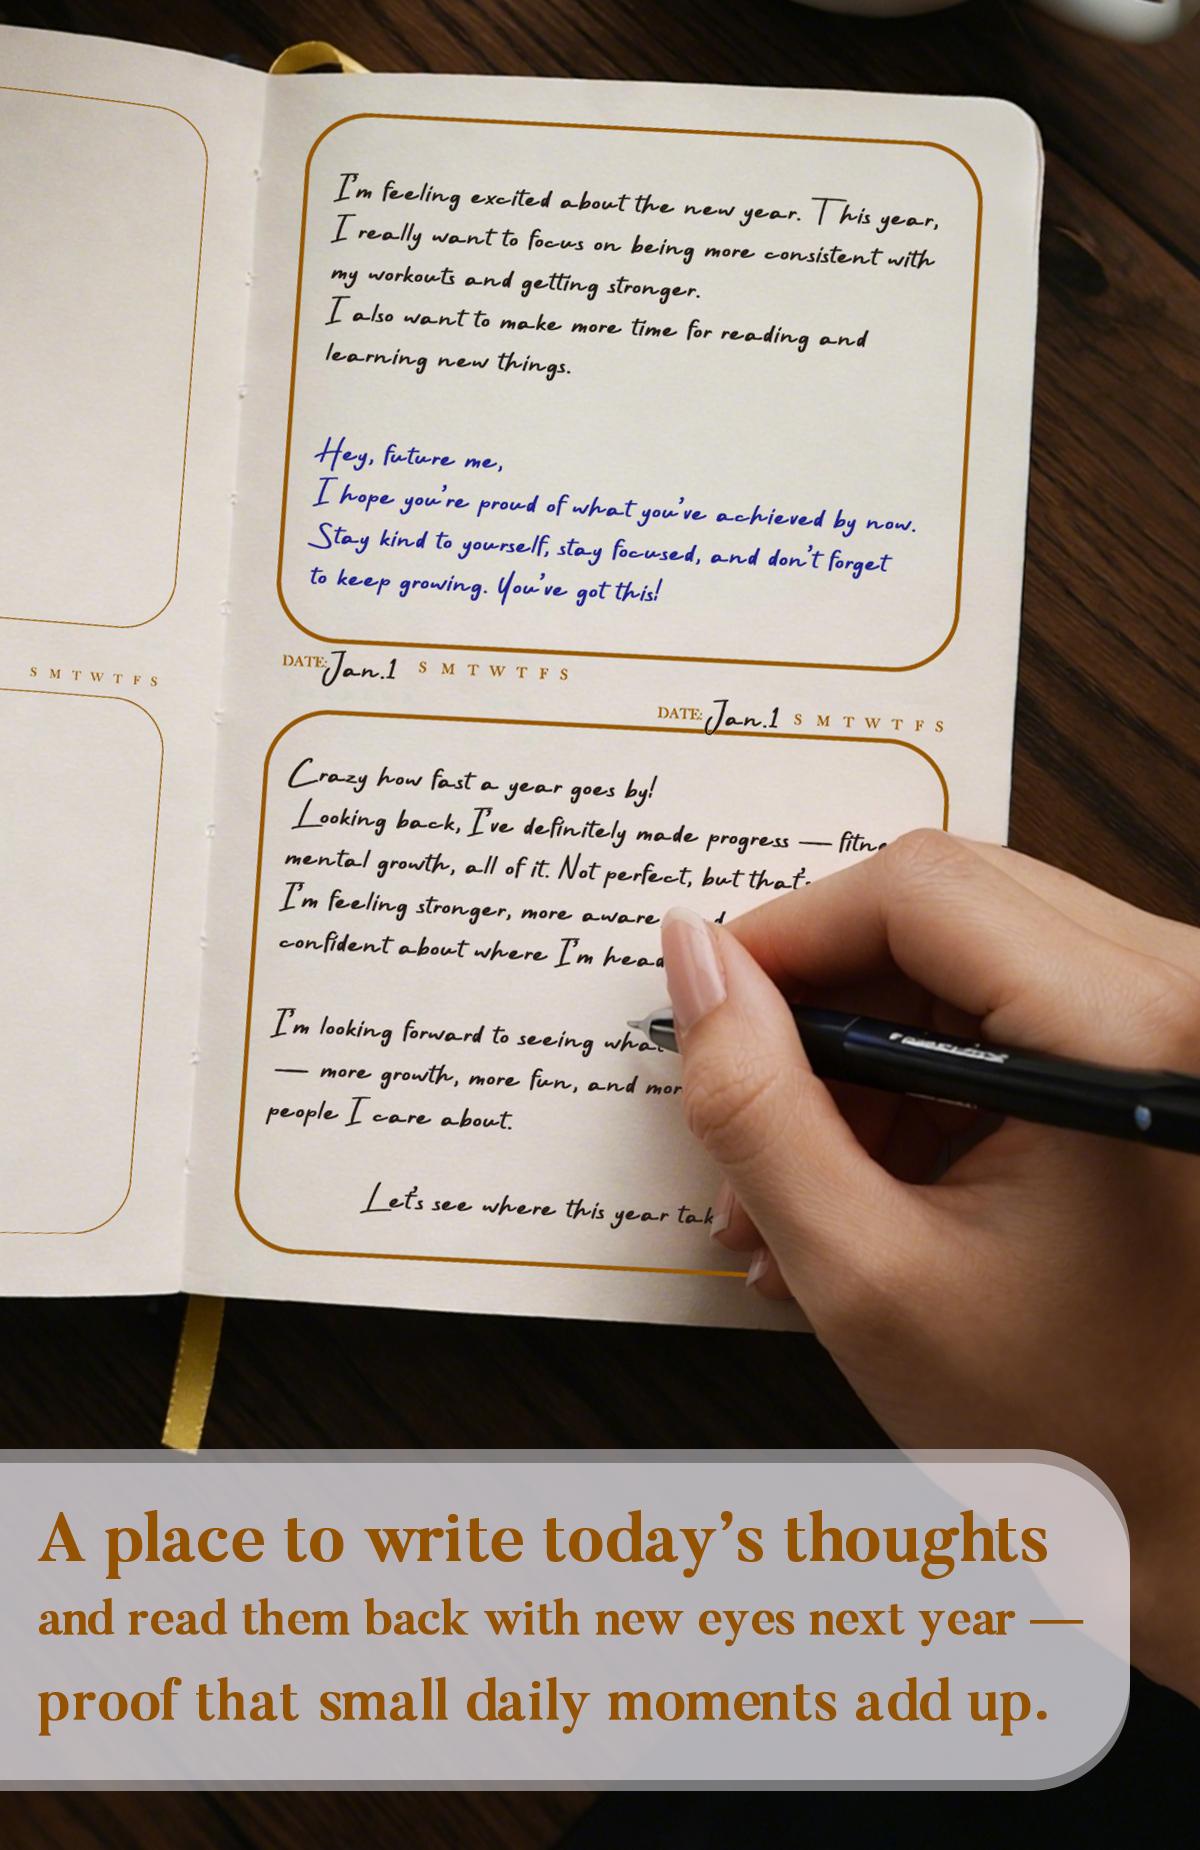 I'm feeling excited about the new year. This year,
I really want to focus on being more consistent with
my workouts and getting stronger.
I also want to make more time for reading and
learning new things.
Hey, future me,
I hope you're proud of what you've achieved by now.
Stay kind to yourself, stay focused, and don't forget
to keep growing. You've got this!
DATE: Jan.1 S M T W T F S
S M T W T F S
DATE: Jan.1 S M T W T F S
Crazy how fast a year goes by!
Looking back, I've definitely made progress — fitne
mental growth, all of it. Not perfect, but that's
I'm feeling stronger, more aware, d
confident about where I'm head
I'm looking forward to seeing what
— more growth, more fun, and mor
people I care about.
Let's see where this year tak
A place to write today's thoughts
and read them back with new eyes next year —
proof that small daily moments add up.